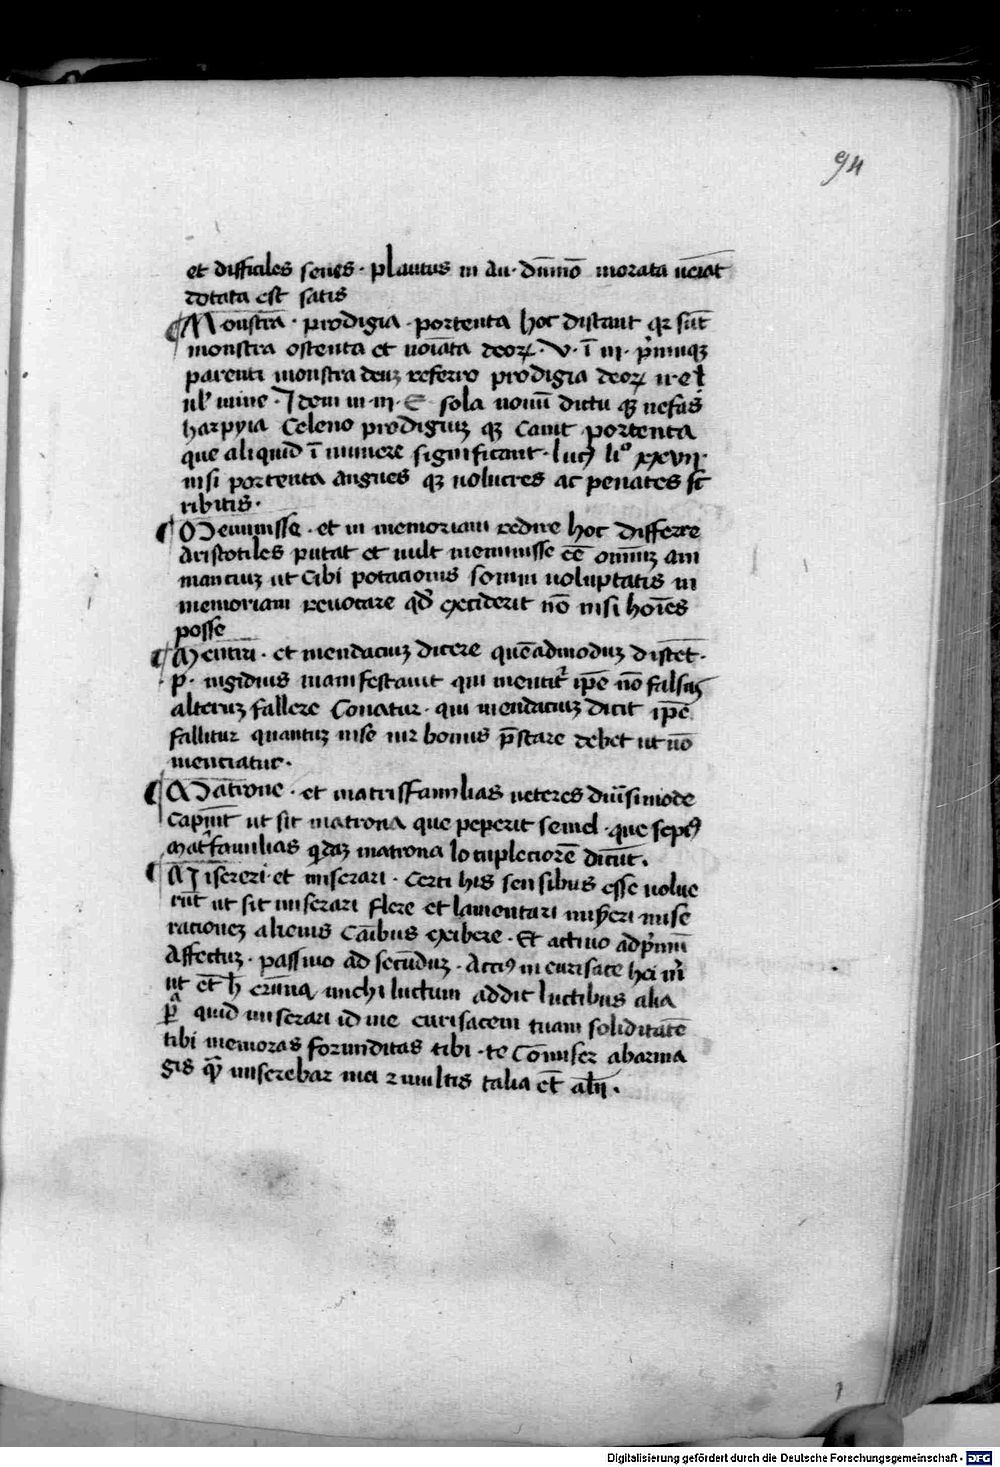 94
et difficiles senes · plautus in au · dūmō morata veīat
dotata est satis
¶ Monstra · prodigia · portenta hoc distant qz sūt
monstra ostenta et voīata deoꝝ · v · ī iii · pͥmuqz
parenti monstra deuz referro prodigia deoꝝ
mine · Idem in iii · E sola novū dictu qz nefas
harpyia Celeno prodigiuz qz canit portenta
que aliquid ī minere significant · lucꝰ liº xxvii ·
nisi portenta angues qz volucres ac penates sc
ribitis ·
¶ Meminisse · et in memoriam redire hoc differre
Aristotiles putat et vult meminisse eē omniuz ani
mancium ut cibi potacionis somni voluptatis in
memoriam revocare qd̄ exciderit nō nisi hoīes
posse
¶ Mentiri · et mendaciuz dicere quēadmoduz distēt ·
p · nigidius manifestavit qui mentitͬ ipē nō falsus
alteruz fallere Conatur · qui mendaciuz dicit ipē
fallitur quantuz in se vir bonus p̄stare debet ut nō
menciatur ·
¶ Matrone · et matrisfamilias veteres div̄simode
capiūt ut sit matrona que peperit semel · que sepiꝰ
matͬfamilias qdaz matrona locupleciorē dicūt ·
¶ Misereri · et miserari · certi his sensibus esse volue
rūt ut sit miserari flere et lamentari misͬeri mise
racionez alienis Cāibus exibere · Et activo ad pͥmū
Affectuz · passivo ad secūduz · Acciꝰ in eurisace hei mͥ
ut et̄ h̄ erūna michi luctum addit luctibus alia
quid miserari id me eurisacem tuam soliditatē
tibi memoras forunditas tibi · te Cōmiser abarma
gis qͣ miserebar mei z multis talia et̄ alii ·
Digitalisierung gefördert durch die Deutsche Forschungsgemeinschaft - DFG